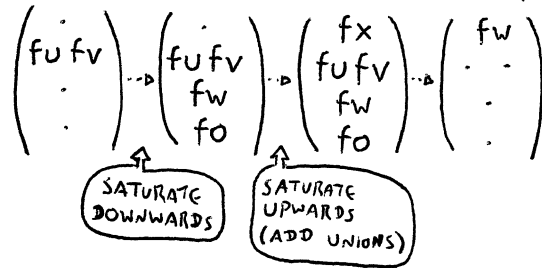 .
fu fv
.
.
.
fu fv
fw
fo
fx
fu fv
fw
fo
fw
. .
.
.
SATURATE
DOWNWARDS
SATURATE
UPWARDS
(ADD UNIONS)